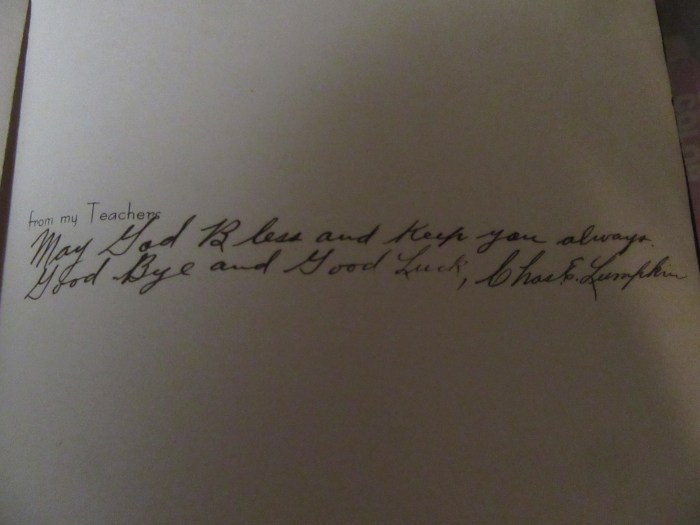 from my Teachers
May God Bless and Keep you always.
Good Bye and Good Luck, Chas E. Lumpkin